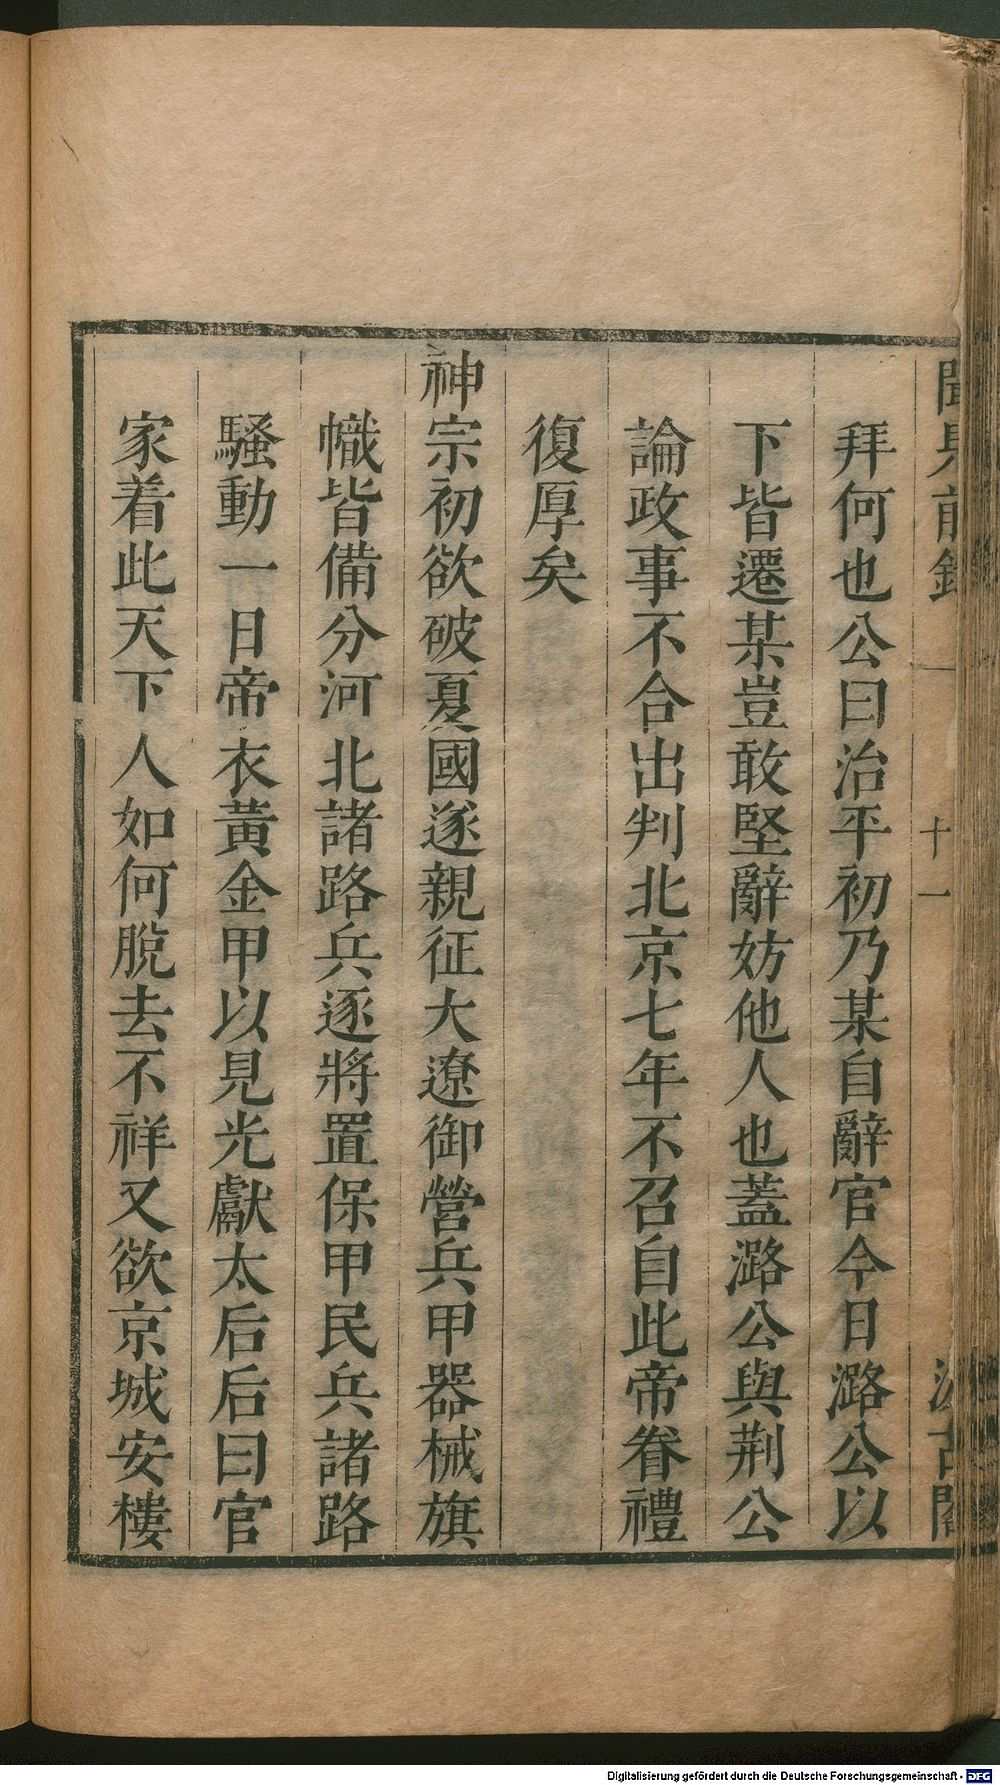 聞見前錄 一 十一 汲古閣
拜何也公曰治平初乃某自辭官今日潞公以
下皆遷某豈敢堅辭妨他人也蓋潞公與荆公
論政事不合出判北京七年不召自此帝眷禮
復厚矣
神宗初欲破夏國遂親征大遼御營兵甲器械旗
幟皆備分河北諸路兵逐將置保甲民兵諸路
騷動一日帝衣黃金甲以見光獻太后后曰官
家着此天下人如何脫去不祥又欲京城安樓
Digitalisierung gefördert durch die Deutsche Forschungsgemeinschaft - DFG